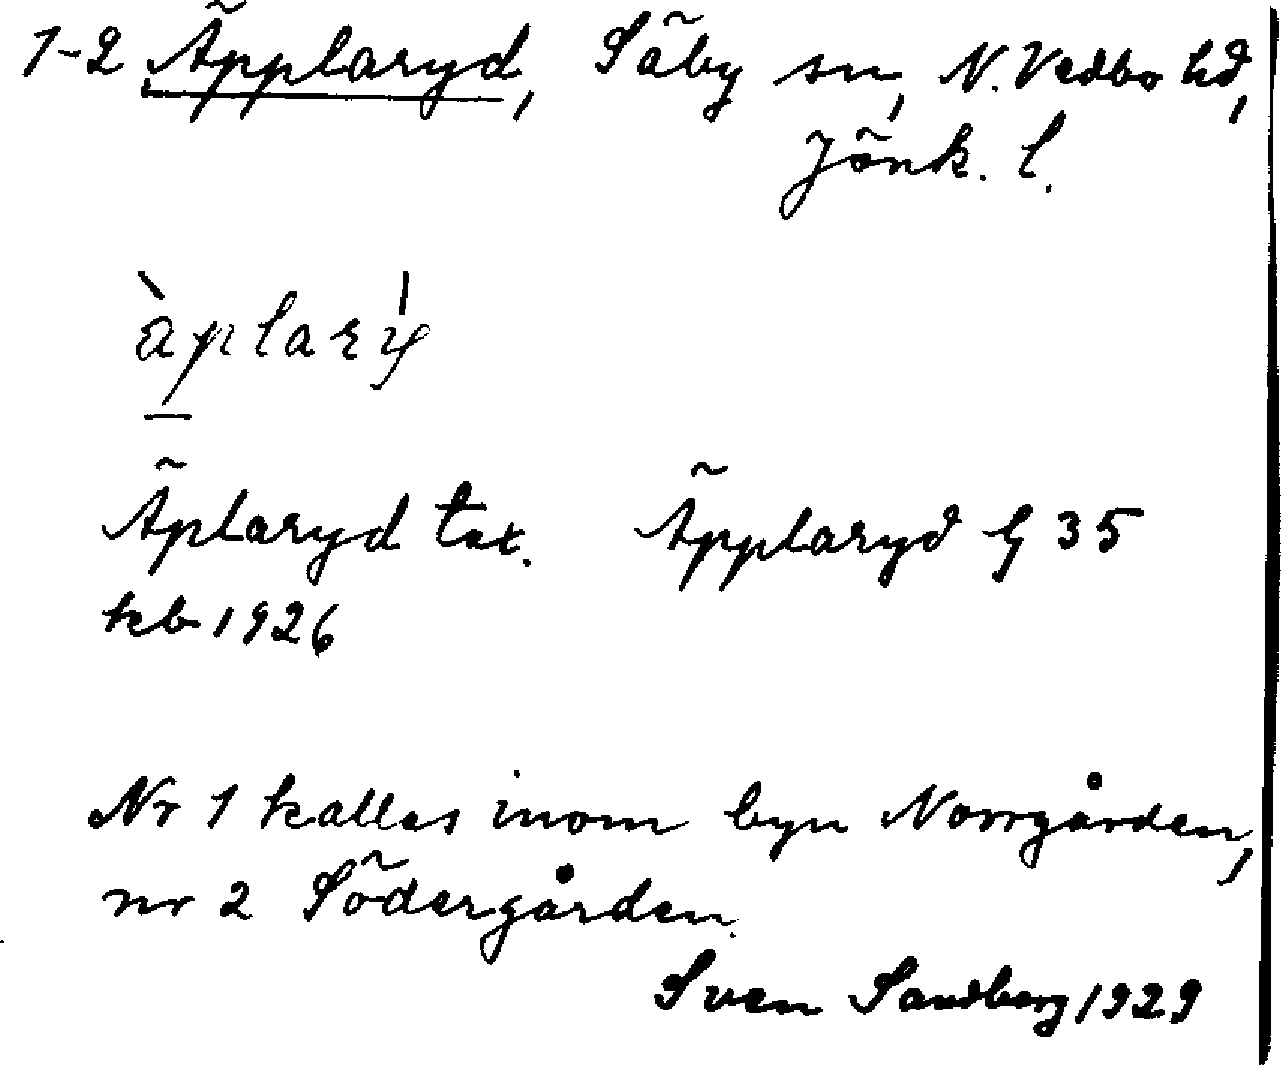 1-2 Äpplaryd, Säby sn, N. Vedbo hd,
Jönk. l.
àplarý
Äplaryd tax. Äpplaryd G 35
kb 1926
Nr 1 kallas inom byn Norrgården,
nr 2 Södergården.
Sven Sandberg 1929